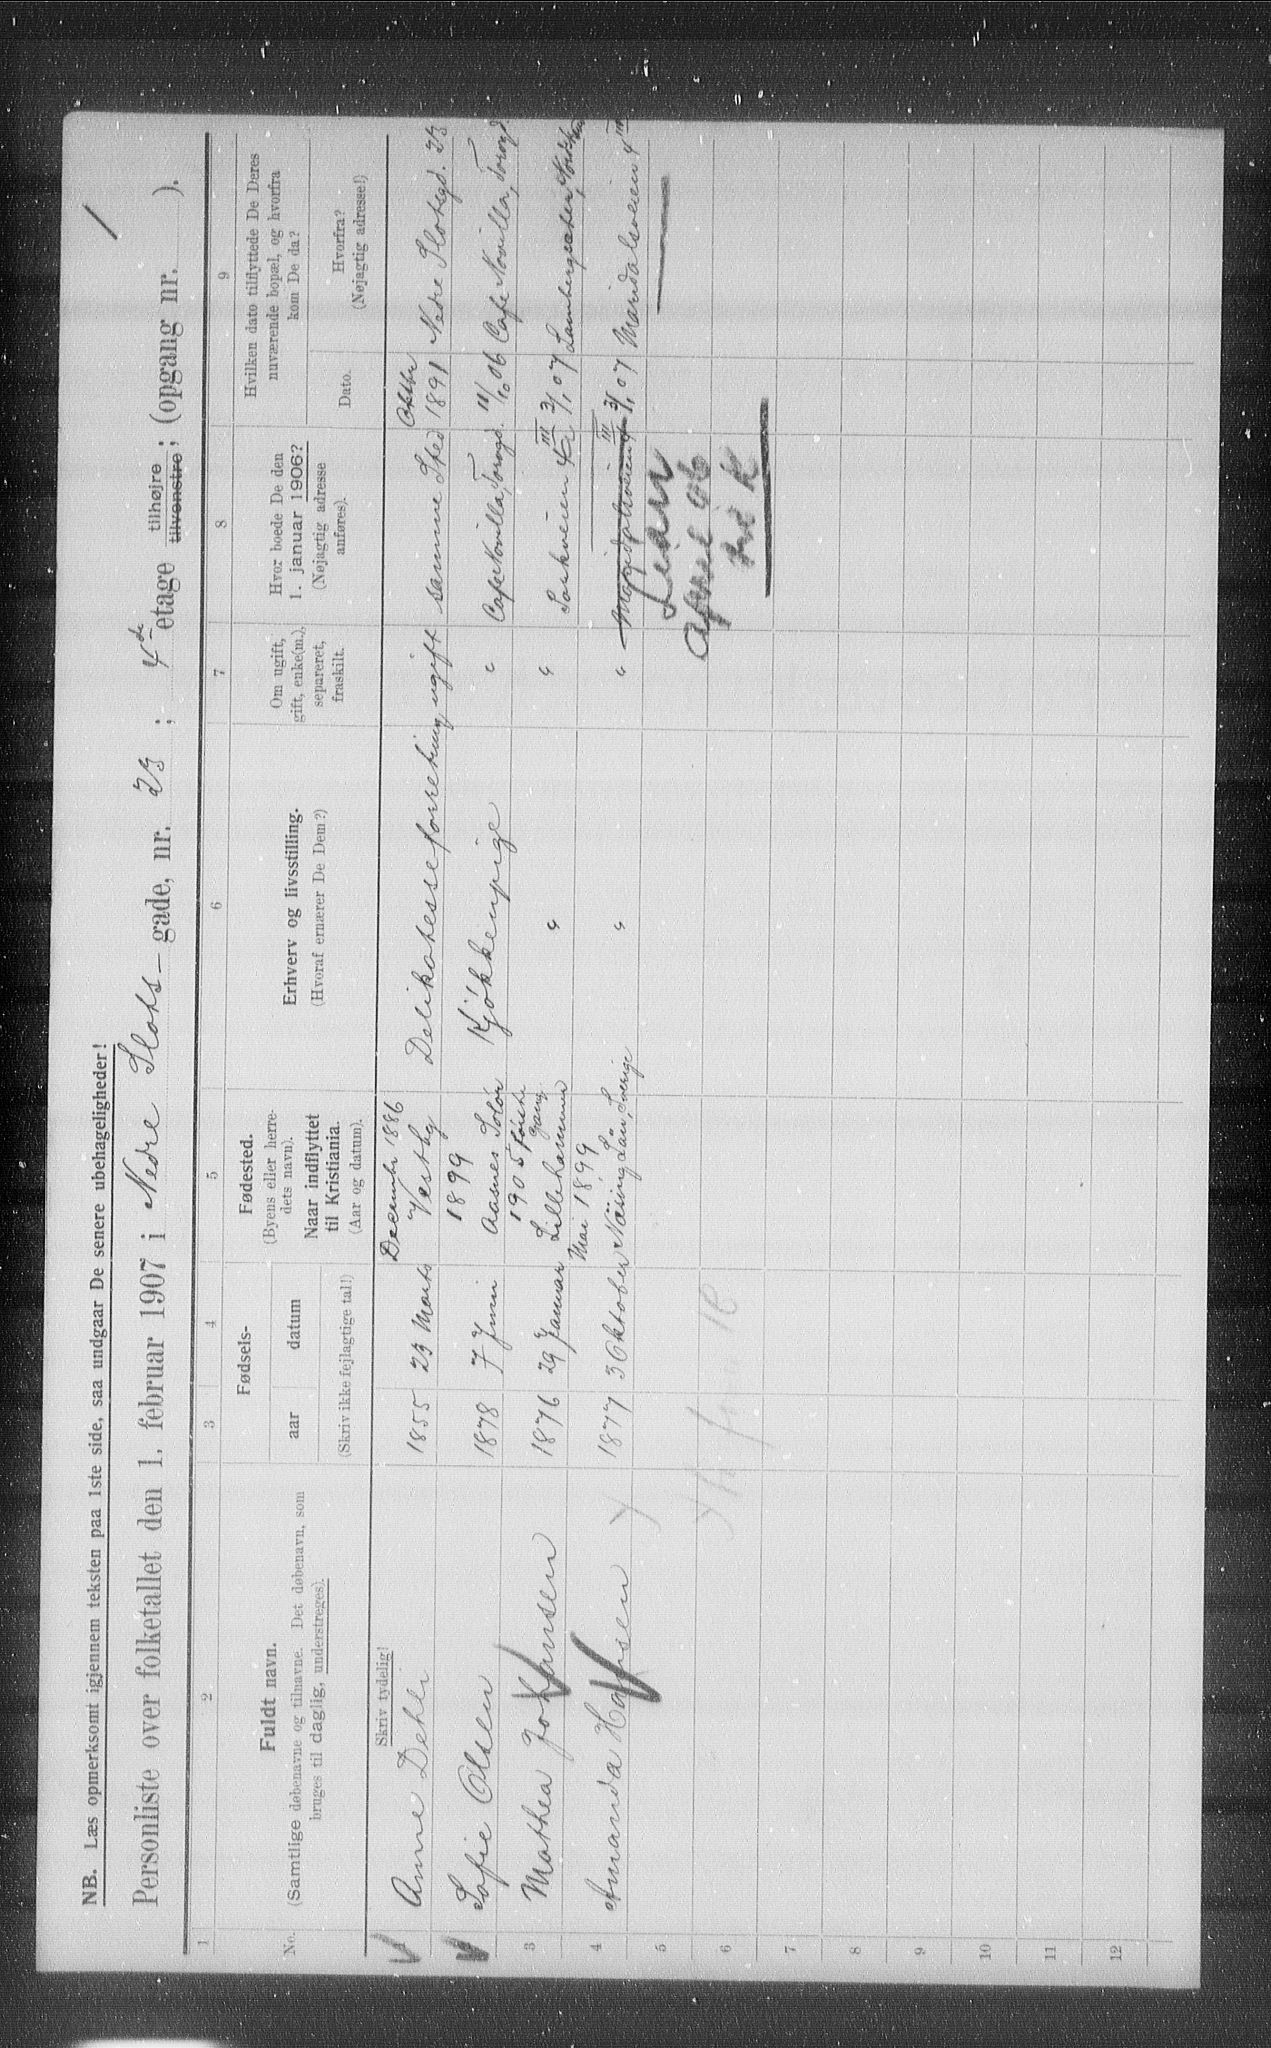 NB. Læs opmerksomt igjennem teksten paa 1ste side, saa undgaar De senere ubehageligheder!
Personliste over folketallet den 1. februar 1907 i Nedre Slots-gade, nr. 23; 4de etage tilhøjre tilvenstre; (opgang nr. ).
1 2 3 4 5 6 7 8 9
No.
Fuldt navn.
(Samtlige døbenavne og tilnavne. Det døbenavn, som
bruges til daglig, understreges).
Skriv tydelig!
Fødsels-
aar datum
(Skriv ikke fejlagtige tal!)
Fødested.
(Byens eller herre-
dets navn).
Naar indflyttet
til Kristiania.
(Aar og datum).
Erhverv og livsstilling.
(Hvoraf ernærer De Dem?)
Om ugift,
gift, enke(m.),
separeret,
fraskilt.
Hvor boede De den
1. januar 1906?
(Nøjagtig adresse
anføres).
Hvilken dato tilflyttede De Deres
nuværende bopæl, og hvorfra
kom De da?
Dato.
Hvorfra?
(Nøjagtig adresse!)
December 1886 Oktbr
1 Anne Dehli 1855 23 Marts Vestby Delikatesseforretning ugift samme Sted 1891 Nedre Slotsgd. 23
1899
2 Sofie Olsen 1878 7 Juni Aasnes Solør Kjøkkenpige " Cafe Novilla, Torvgd. 11/10 06 Cafe Novilla, Torvgd.
1905 første Gang
3 Mathea Johansen 1876 29 Januar Lillehammer " " 4 III 3/1 07
Mai 1899
4 Amanda Hansen 1877 3 Oktober Län, Sverige " " Maridalsveien 4 III 3/1 07 Maridalsveien 4 III
5
6
7
8
9
10
11
12